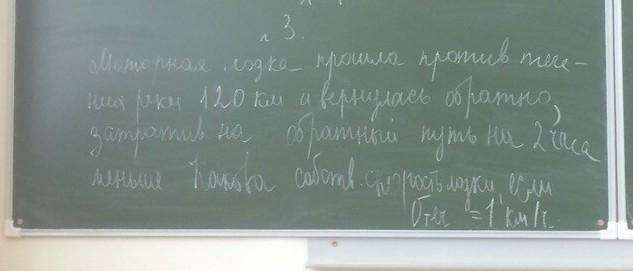 3.
Моторная лодка прошла против тече-
ния реки 120 км и вернулась обратно,
затратив на обратный путь на 2 часа
меньше Какова собств. скорость лодки, если
υтеч = 1 км/ч.